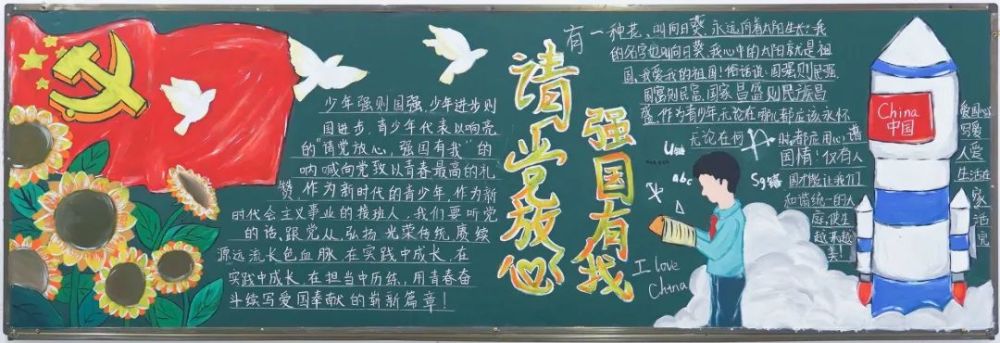 少年强则国强,少年进步则
国进步,青少年代表以响亮
的“请党放心,强国有我”的
呐喊向党致以青春最高的礼
赞,作为新时代的青少年,作为新
时代会主义事业的接班人,我们要听党
的话,跟党从,弘扬光荣传统,赓续
源远流长色血脉,在实践中成长,在
实践中成长,在担当中历练,用青春奋
斗续写爱国奉献的崭新篇章!
请党放心
强国有我
有一种花,叫向日葵,永远向着太阳生长;我
的名字也叫向日葵,我心中的太阳就是祖
国,我爱我的祖国!俗话说:国强则民强,
国富则民富,国家昌盛则民族昌
盛,作为青少年无论在哪儿都应该永怀
无论在何时,都应用心,谱
国情!仅有人
国才能让我们
和谐统一的大
庭,使生
越来越
美!
abc
I love
China
China
中国
人爱
生活在
家
活